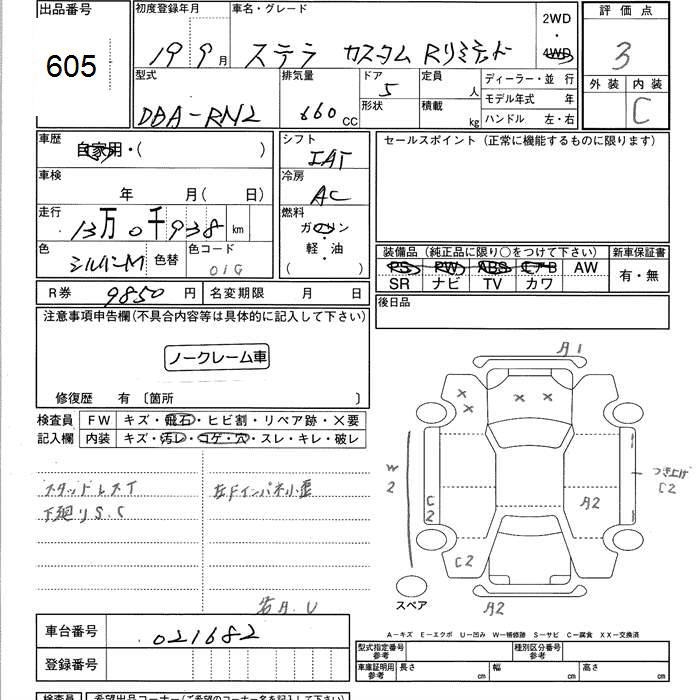 出品番号
605
初度登録年月
19 9月
車名・グレード
ステラ カスタム Rリミテッド
2WD
・
4WD
評価点
3
外装 内装
C
型式
DBA-RN2
排気量
660 CC
ドア
5
形状
定員
人
積載
kg
ディーラー・並 行
モデル年式 年
ハンドル 左・右
車歴
自家用・( )
シフト
IAT
セールスポイント(正常に機能するものに限ります)
車検
年 月( 日)
冷房
AC
走行
13万0千938 km
燃料
ガソリン
軽・油
( )
色
シルバーM
色替
色コード
01G
装備品(純正品に限り○をつけて下さい)
PS PW ABS エアB AW
SR ナビ TV カワ
新車保証書
有・無
R券 9850円
名変期限 月 日
後日品
注意事項申告欄(不具合内容等は具体的に記入して下さい)
ノークレーム車
修復歴 有 〔箇所 〕
検査員
記入欄
FW キズ・飛石・ヒビ割・リペア跡・×要
内装 キズ・汚レ・コゲ・穴・スレ・キレ・破レ
スタッドレスT
下廻りS.C
左Fインパネ小歪
A1
W
2
C
2
A2
つき上げ
C2
C2
A2
スペア
A-キズ E-エクボ U-凹み W-補修跡 S-サビ C-腐食 XX-交換済
車台番号
021682
登録番号
型式指定番号
参考
種別区分番号
参考
車庫証明用
参考
長さ cm
幅 cm
高さ cm
検査員
希望出品コーナー(ご希望のコーナー名を記入して下さい)